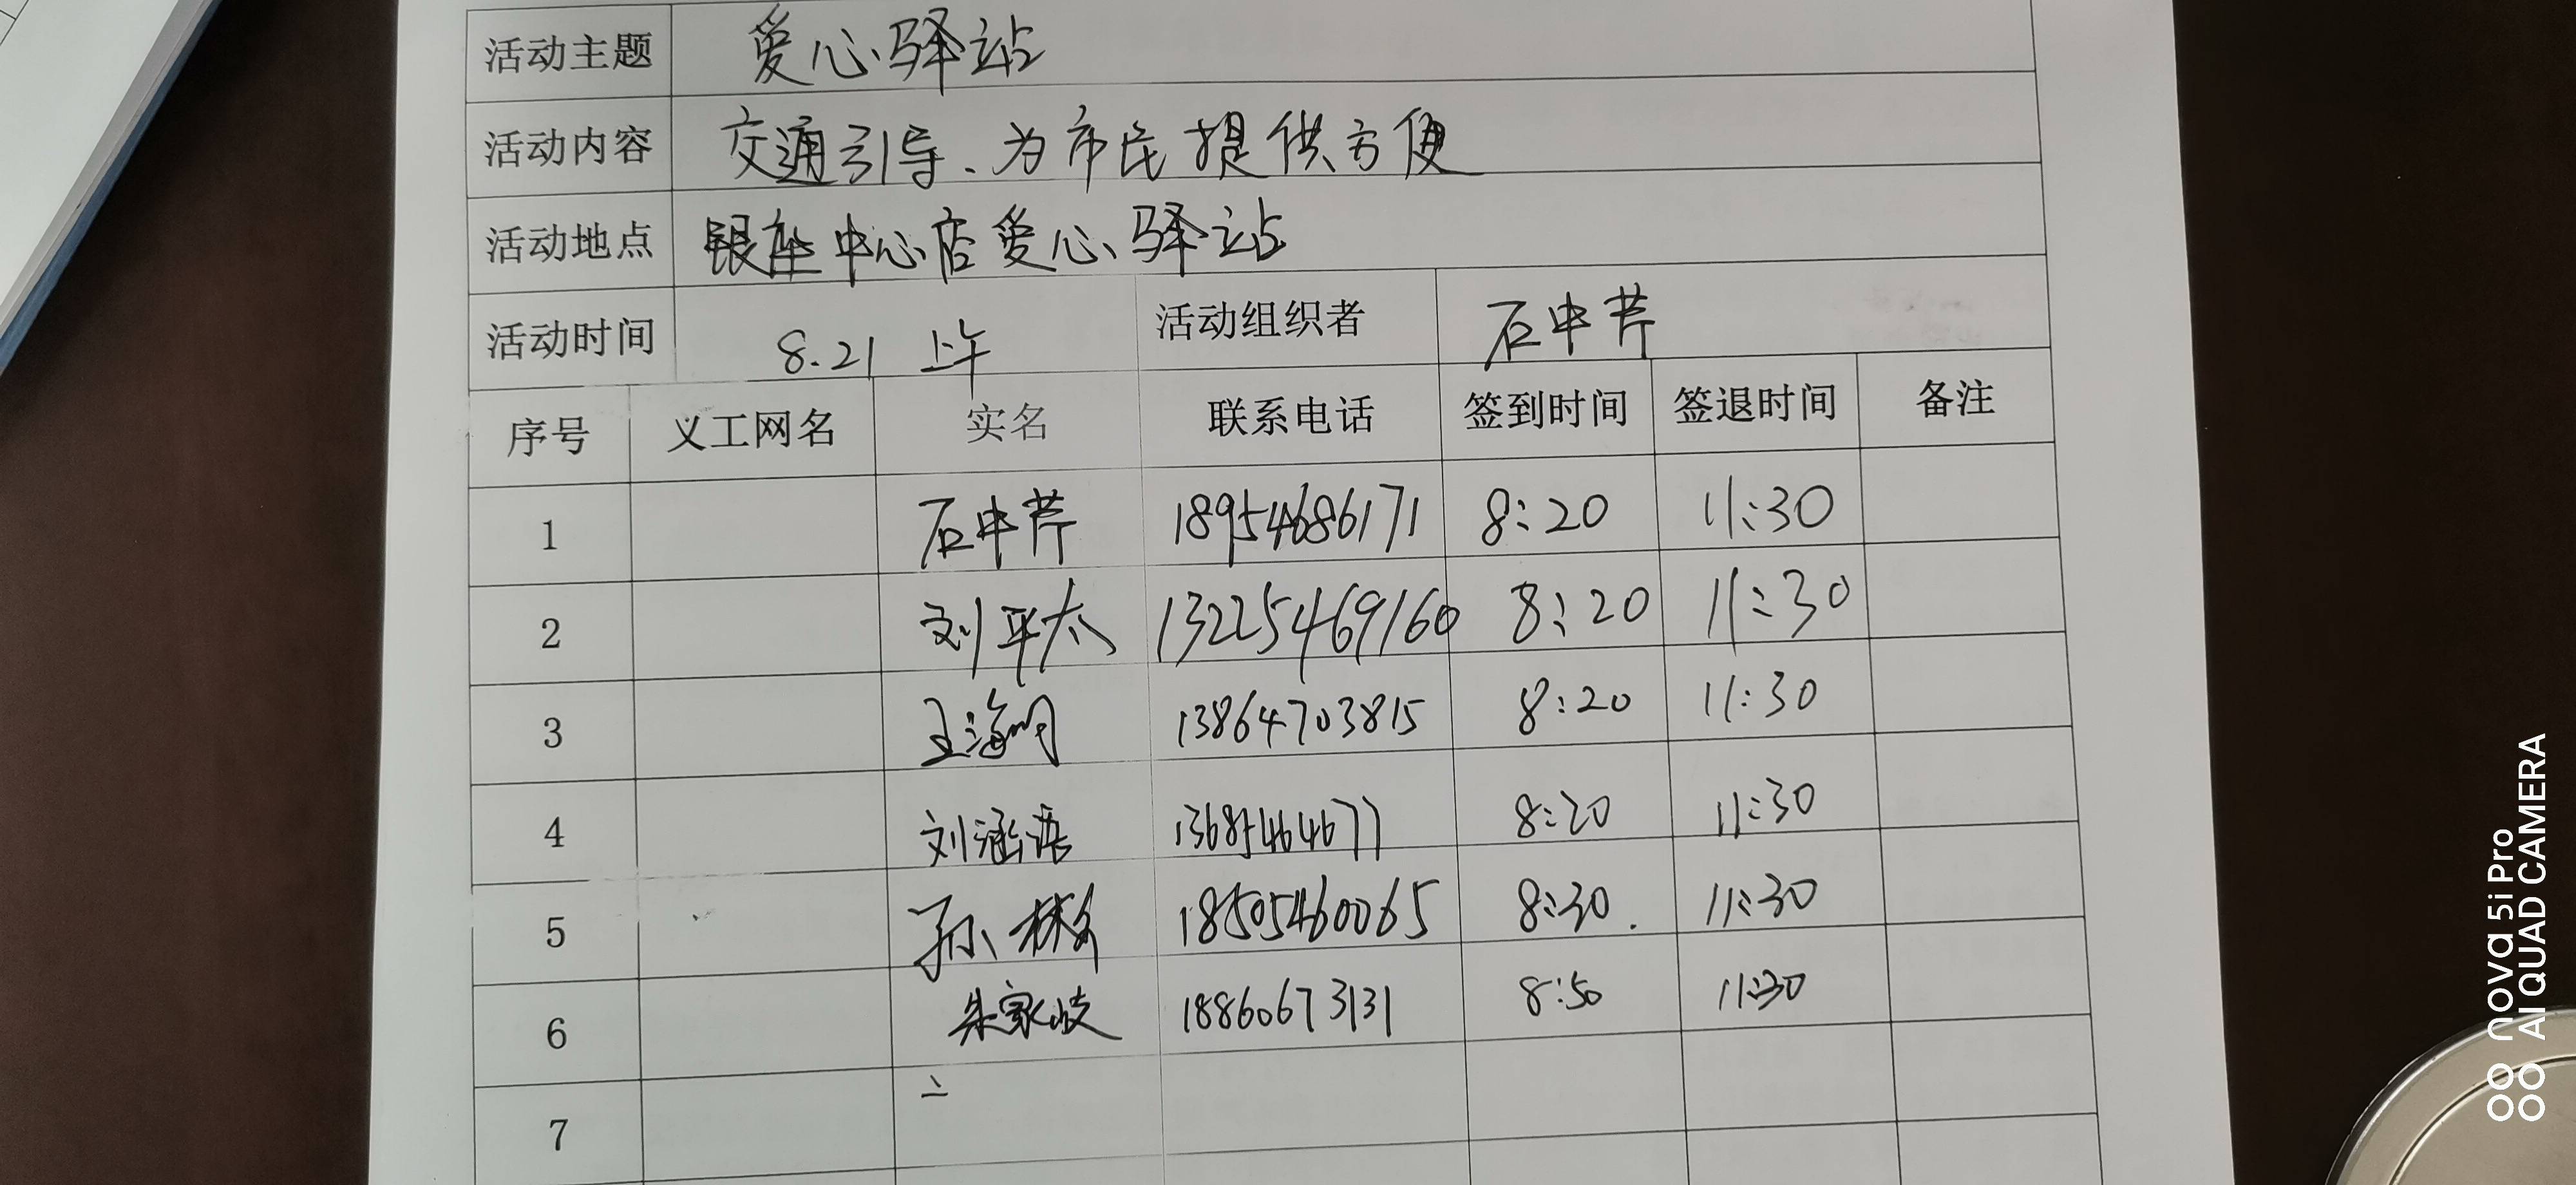 活动主题 爱心驿站
活动内容 交通引导、为市民提供方便
活动地点 银座中心店爱心驿站
活动时间 8.21 上午 活动组织者 石中芹
序号 义工网名 实名 联系电话 签到时间 签退时间 备注
1 石中芹 18954686171 8:20 11:30
2 刘平太 13225469160 8:20 11:30
3 王海明 13864703815 8:20 11:30
4 刘涵语 13685464677 8:20 11:30
5 孙 18505460065 8:30. 11:30
6 朱家岐 18860673131 8:50 11:30
7
nova 5i Pro
AI QUAD CAMERA